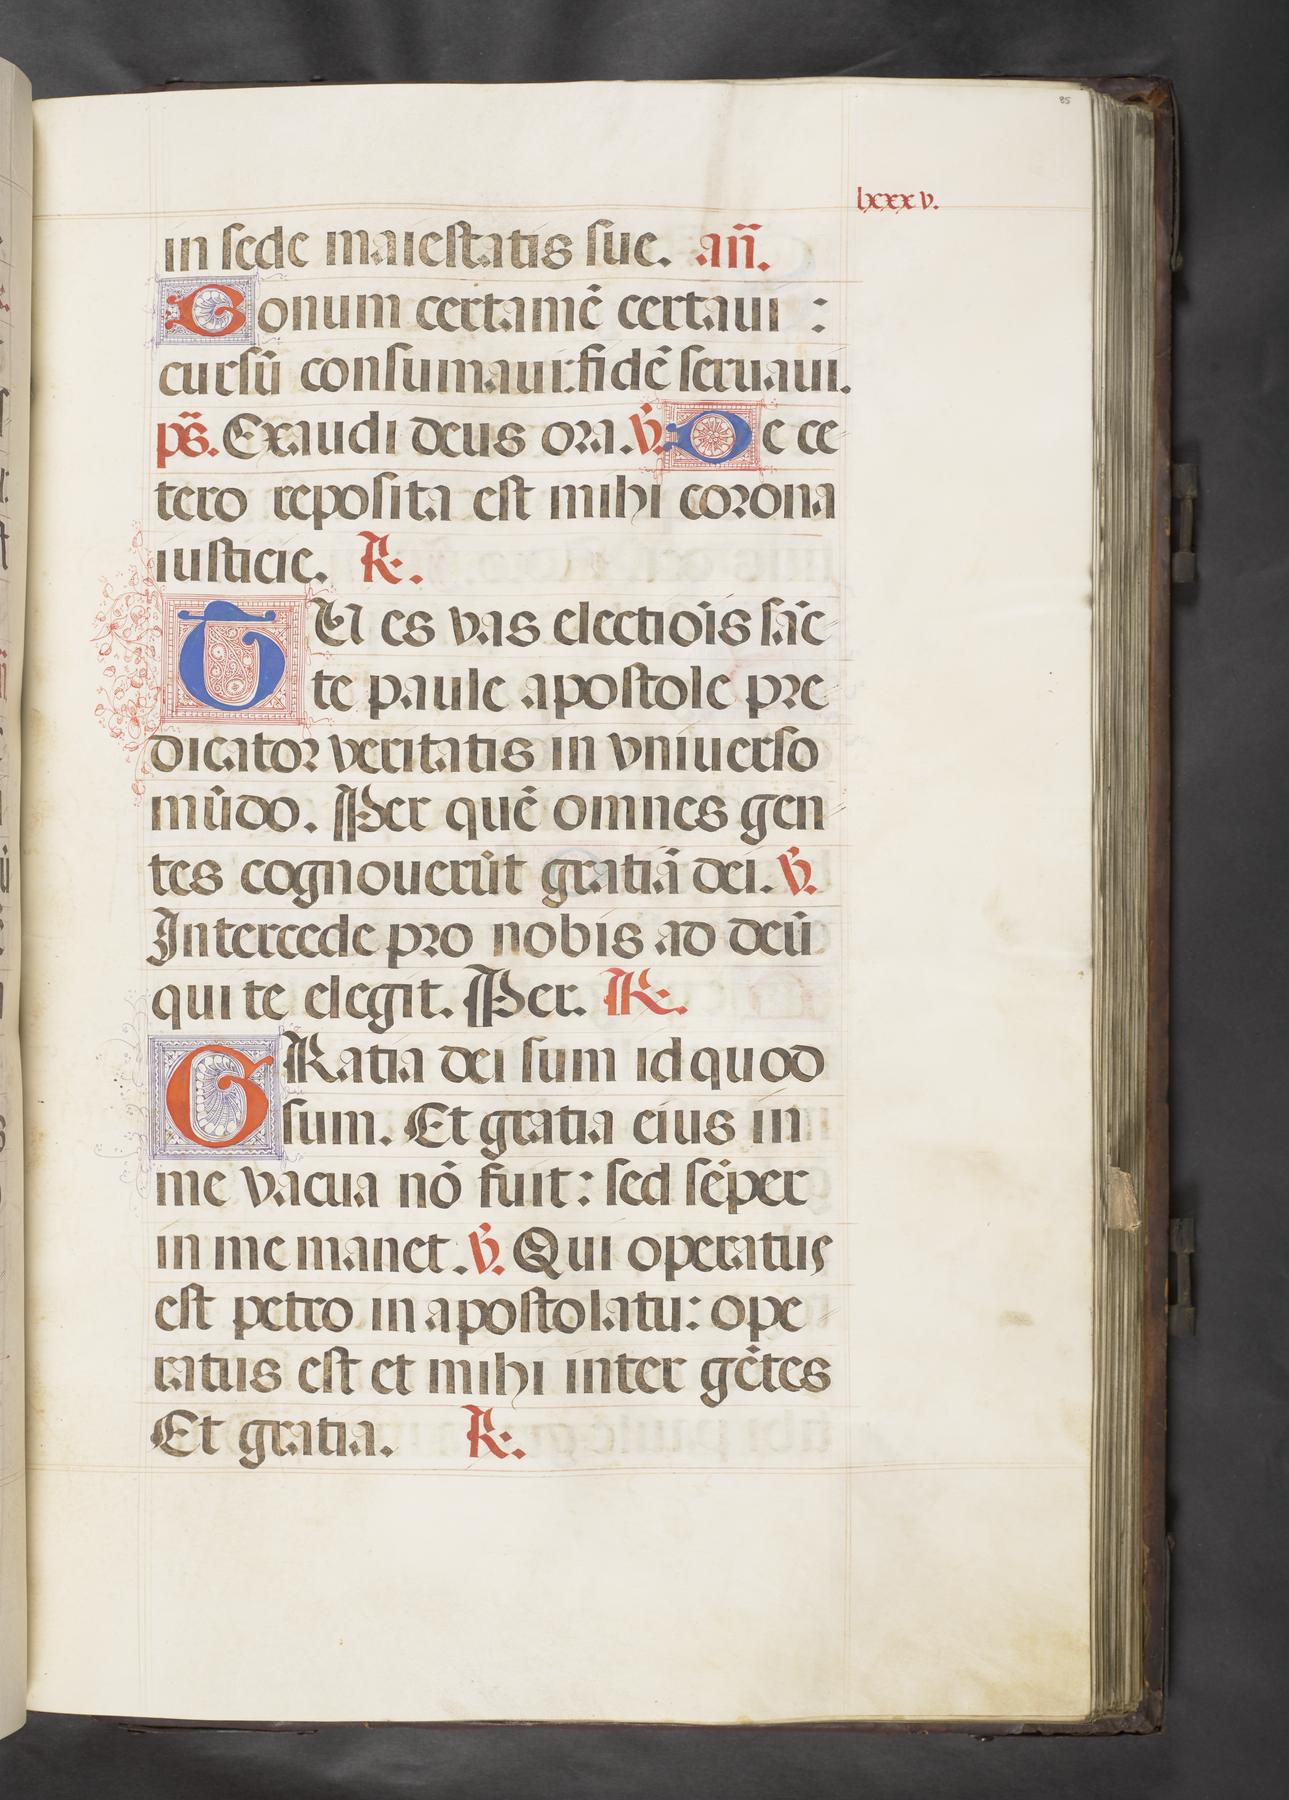 85
lxxxv.
in sede maiestatis sue. añ.
Bonum certamē certaui :
cursū consumaui: fidē seruaui.
ps̄. Exaudi deus ora. ℣. De ce
tero reposita est mihi corona
iusticie. ℟.
TU es vas electiōis sāc
te paule apostole pre
dicator veritatis in vniuerso
mūdo. Per quē omnes gen
tes cognouerūt gratiā dei. ℣.
Intercede pro nobis ad deū
qui te elegit. Per. ℟.
GRatia dei sum id quod
sum. Et gratia eius in
me vacua nō fuit: sed sēper
in me manet. ℣. Qui operatus
est petro in apostolatu: ope
ratus est et mihi inter gētes
Et gratia. ℟.